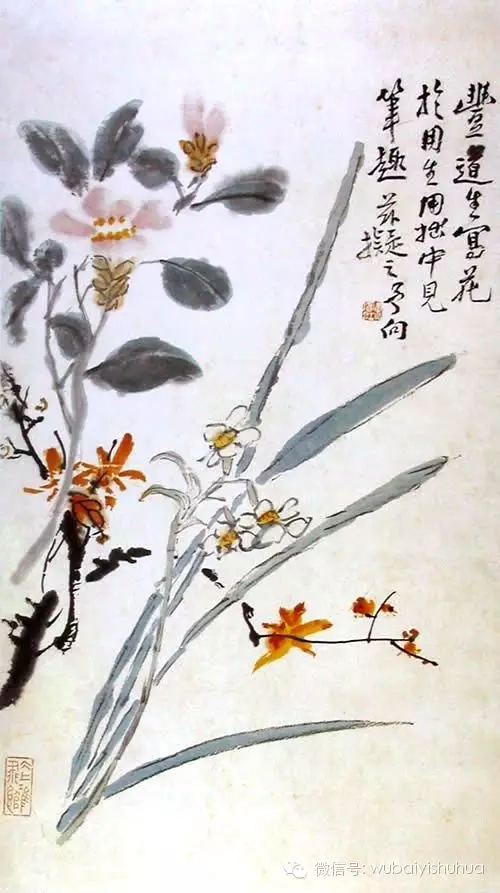 豐道生寫花
於用生用拙中見
筆趣 茲擬之 予向
微信号: wubaiyishuhua